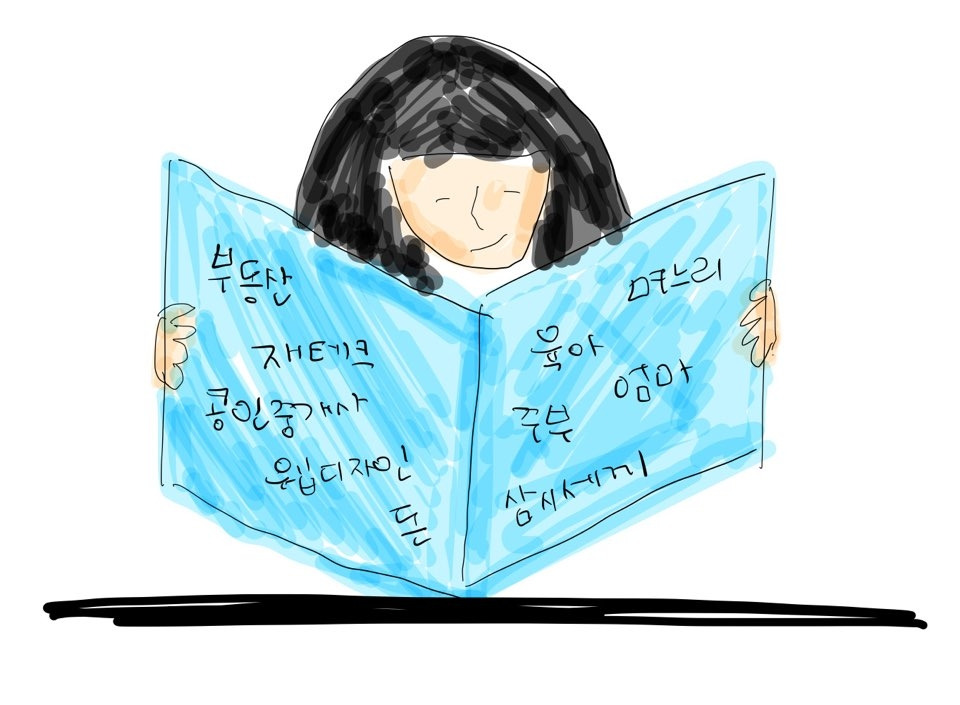 부동산
재테크
공인중개사
웁십디자인
돈
며느리
육아
엄마
주부
삼시세끼